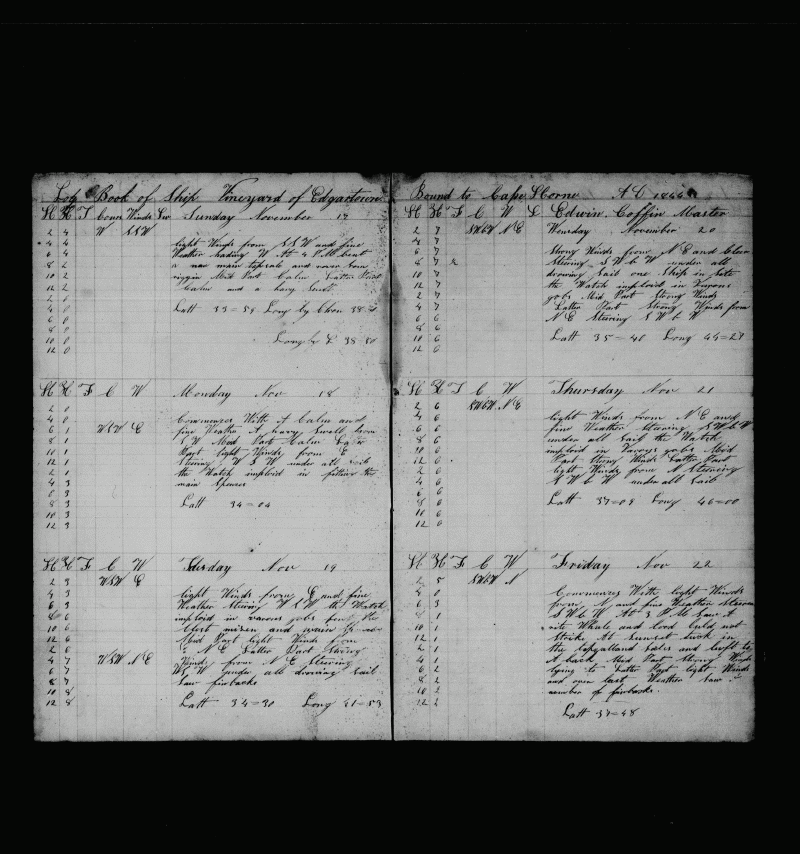 Log Book of Ship Vineyard of Edgartown
H K F Cours Winds Lw Sunday November 17
2 4 W SSW
4 4 light Winds from SSW and fine
6 4 Weather heading W At 4 P M bent
8 2 a new main topsail and
10 2 Mid Part Calm Latter Part
12 2 Calm and a havy Swell
2 0
4 0 Latt 33=59 Long by Chro 38=
6 0
8 0
10 0 Long by 38
12 0
H K F C W Monday Nov 18
2 0
4 0 Commences With A Calm and
6 1 WSW E fine Weather A havy Swell from
8 1 S W Mid Part Calm Latter
10 1 Part light Winds from E
12 1 Stearing W S W under all Sail
2 1 the Watch imploid in fitting the
4 3 main Spencer
6 3
8 3 Latt 34=04
10 3
12 3
H K F C W Tusday Nov 19
2 3 WSW E
4 3 light Winds from E and fine
6 3 Weather Stearing W S W the Watch
8 6 imploid in varous jobs
10 6 mizen and
12 6 Mid Part light Winds from
2 6 N E Latter Part Strong
4 7 WSW NE Winds from N E Stearing
6 7 W S W under all drawing Sail
8 7 Saw finbacks
10 8
12 8 Latt 34=30 Long 41=53
Bound to Cape Horne A D 1844
H K F C W L Edwin Coffin Master
2 7 SWbW NE Wensday November 20
4 7
6 7 Strong Winds from N E and Clear
8 7 Stearing S W b W under all
10 7 drawing Sail one Ship in Site
12 7 the Watch imploid in Varous
2 7 jobs Mid Part Strong Winds
4 7 Latter Part Strong Winds from
6 6 N E Stearing S W b W
8 6
10 6 Latt 35=40 Long 44=27
12 6
H K F C W Thursday Nov 21
2 6 SWbW NE
4 6 light Winds from N E and
6 6 fine Weather Stearing S W b W
8 6 under all Sail the Watch
10 6 imploid in Varoys jobs Mid
12 6 Part Strong Winds Latter Part
2 6 light Winds from N Stearing
4 6 S W b W under all Sail
6 6
8 6 Latt 37=09 Long 46=00
10 6
12 6
H K F C W Friday Nov 22
2 5 SWbW N
4 0 Commences With light Winds
6 3 from N and fine Weather Stearing
8 1 S W b W At 3 P M Saw A
10 1 rite Whale and Could not
12 1 Strike At Sunset took in
2 1 the topgalland Sales and luft to
4 1 A back Mid Part Strong Winds
6 2 lying to Latter Part light Winds
8 2 and Weather Saw A
10 2 number of finbacks
12 2
Latt 37=48